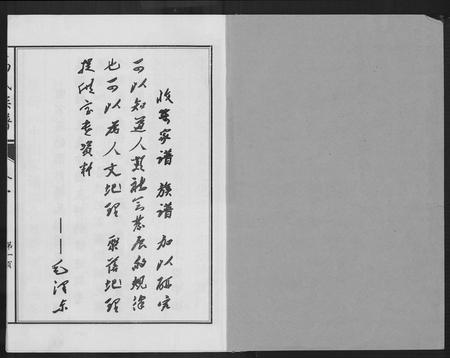 收集家谱 族谱 加以研究
可以知道人类社会发展的规律
也可以为人文地理 聚落地理
提供宝贵资料
——毛泽东
第一页